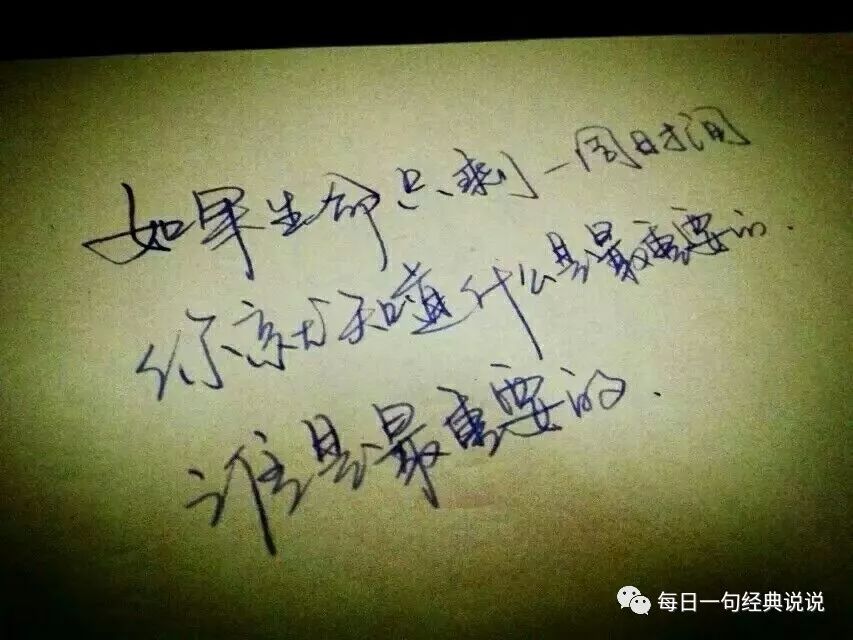 如果生命只剩一周时间
你就知道什么是最重要的.
谁是最重要的.
每日一句经典说说